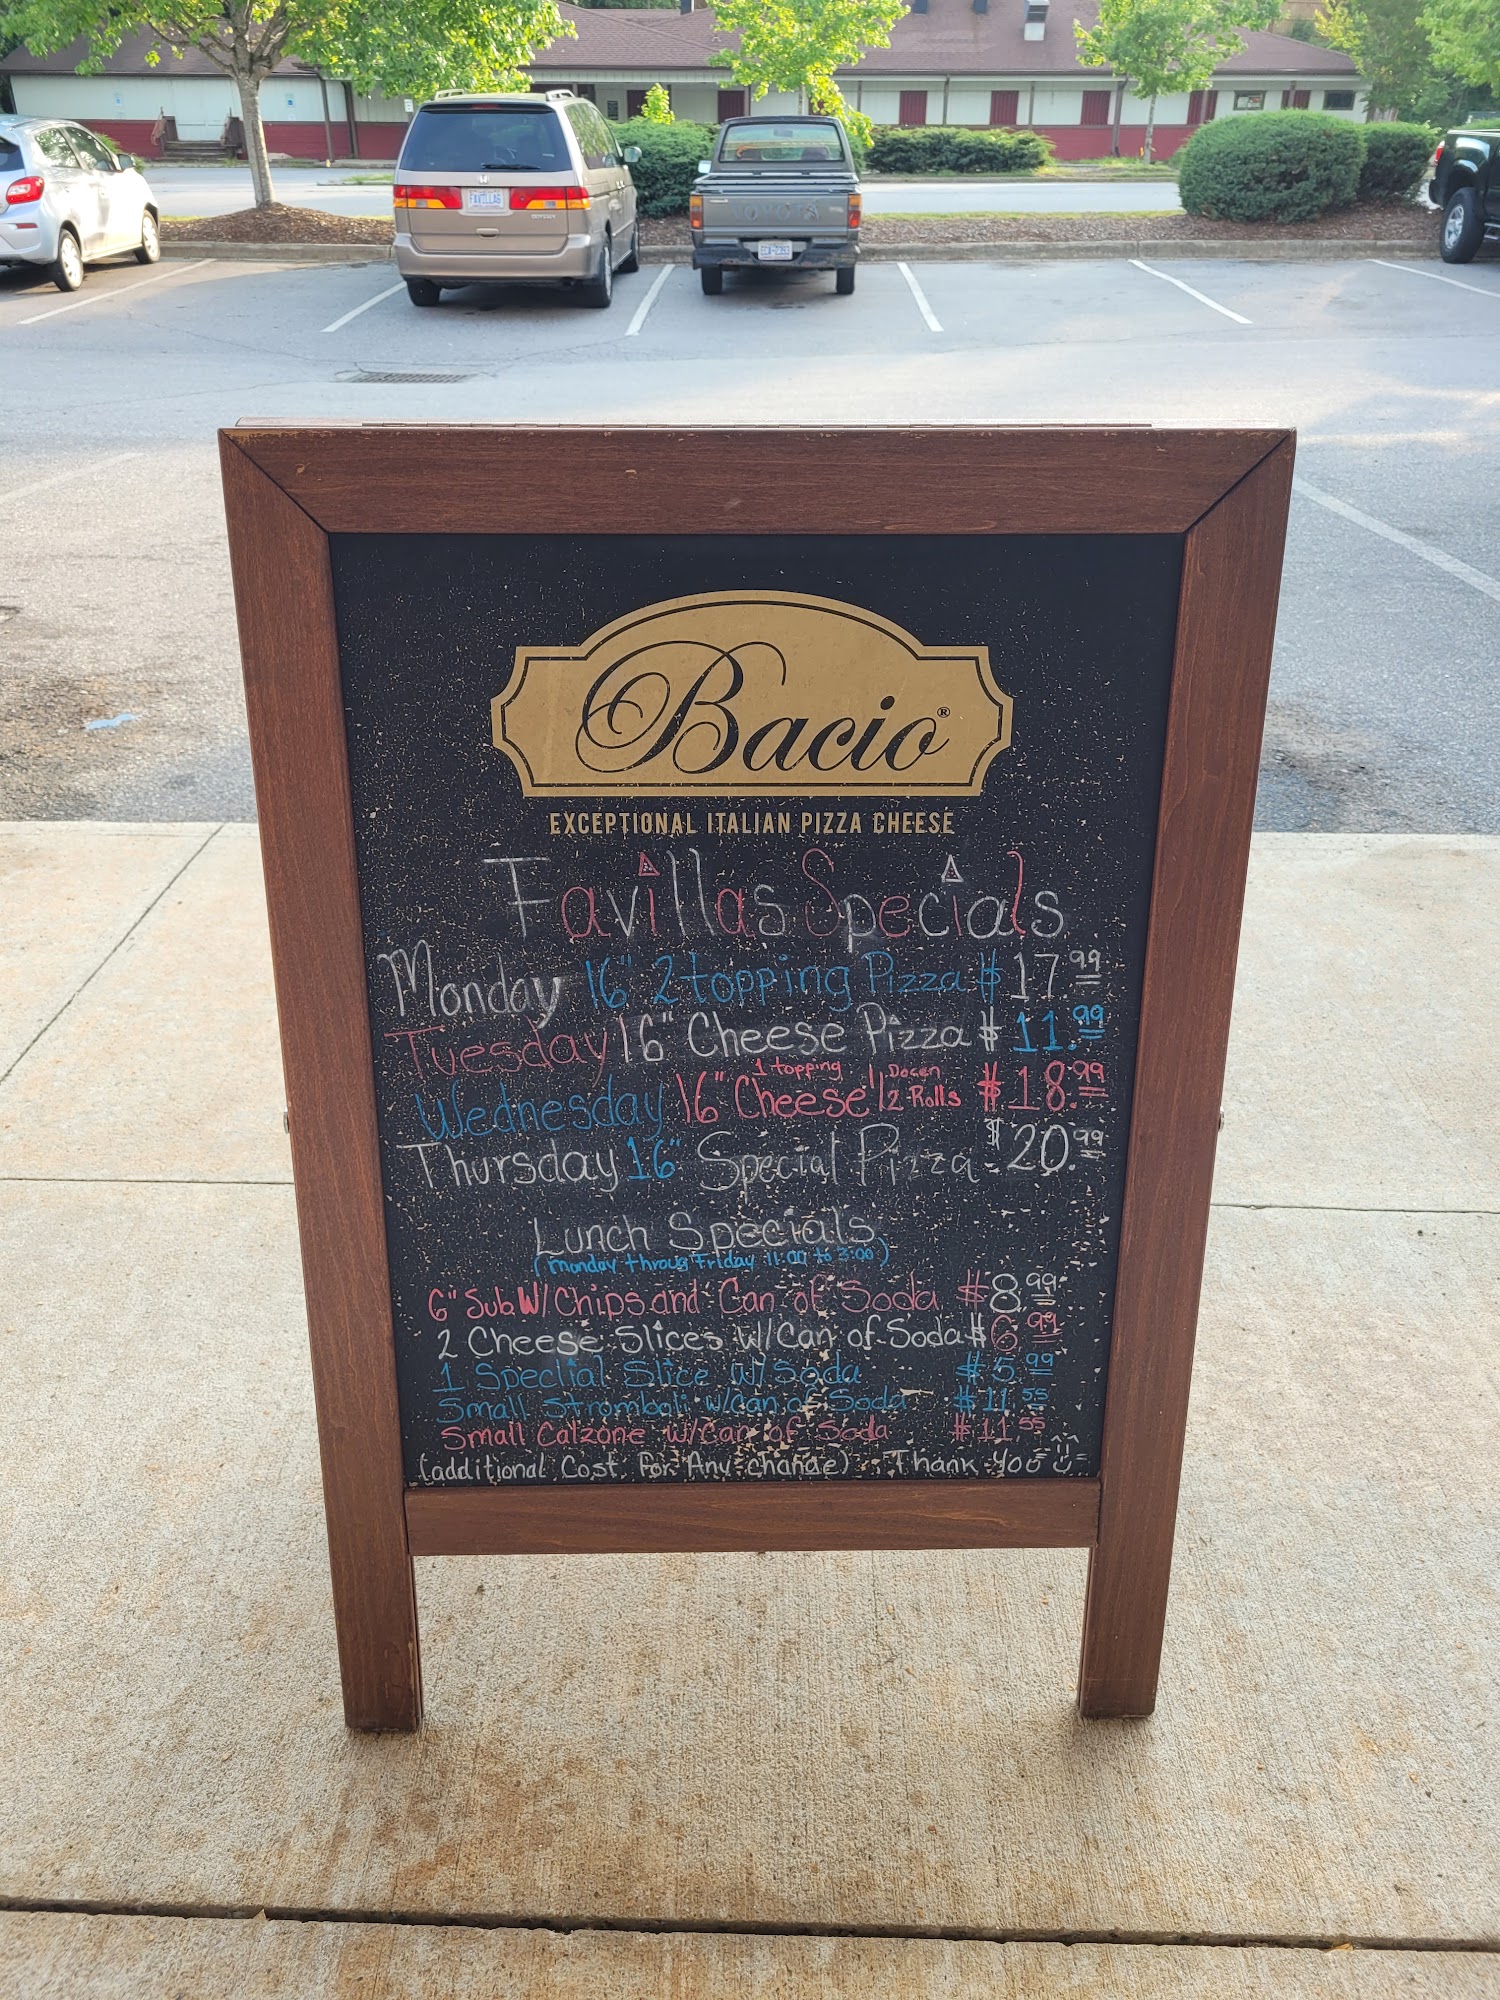 FAVILLAS
ODYSSEY
TOYOTA
Bacio®
EXCEPTIONAL ITALIAN PIZZA CHEESE
Favillas Specials
Monday 16" 2 topping Pizza $17.99
Tuesday 16" Cheese Pizza $11.99
Wednesday 16" Cheese 1 topping 1/2 Dozen Rolls $18.99
Thursday 16" Special Pizza $20.99
Lunch Specials
(Monday throug Friday 11:00 to 3:00)
6" Sub W/ Chips and Can of Soda $8.99
2 Cheese Slices W/Can of Soda $6.99
1 Speclial Slice W/ Soda $5.99
Small Stromboli w/Can of Soda $11.55
Small Calzone w/Can of Soda $11.55
(additional Cost for Any change) Thank You